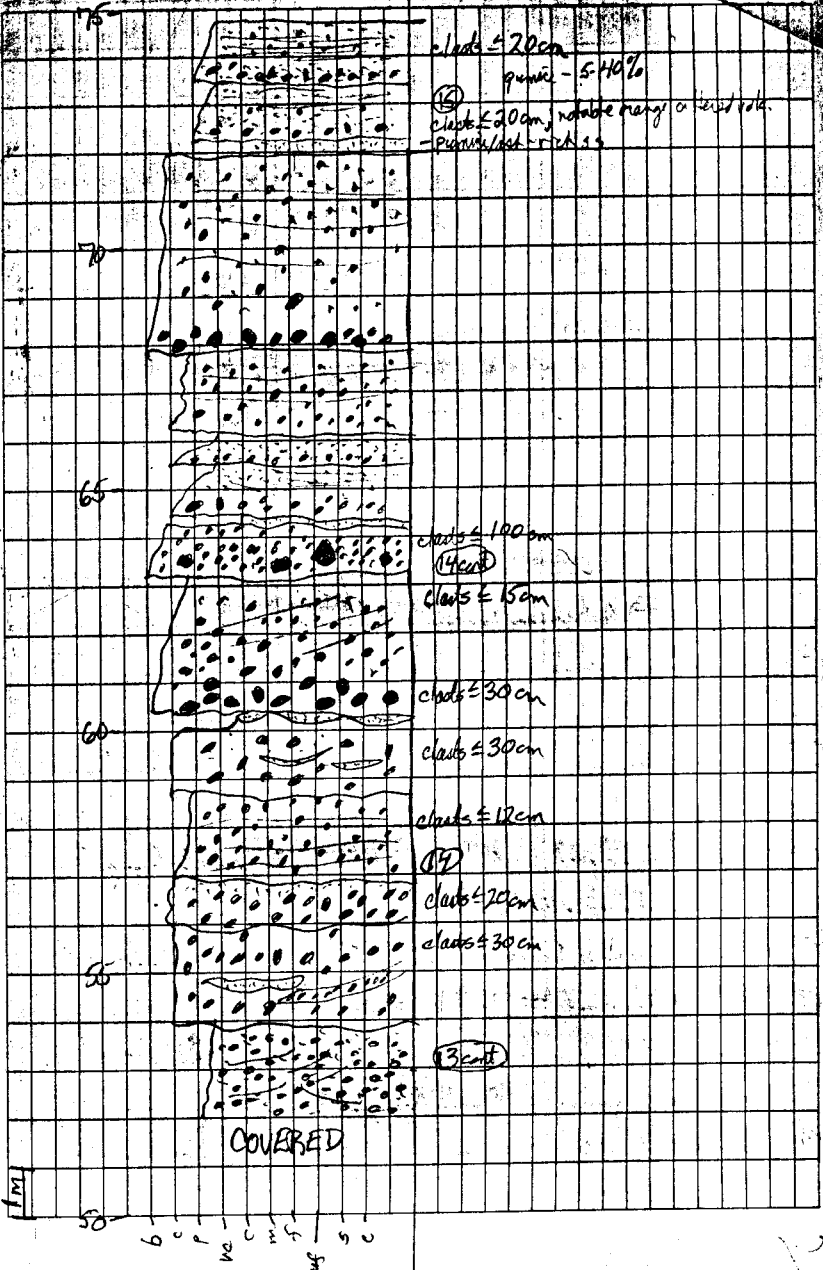 75
clasts ≤ 20cm
pumice - 5-40%
15
clasts ≤ 20 cm, notable orange altered
- pumice/ash-rich ss
70
65
clasts ≤ 100 cm
14 cont
clasts ≤ 15cm
clasts ≤ 30 cm
60
clasts ≤ 30 cm
clasts ≤ 12cm
14
clasts ≤ 20cm
clasts ≤ 30 cm
55
13 cont
COVERED
1m
50
b c p vc c m f vf s c